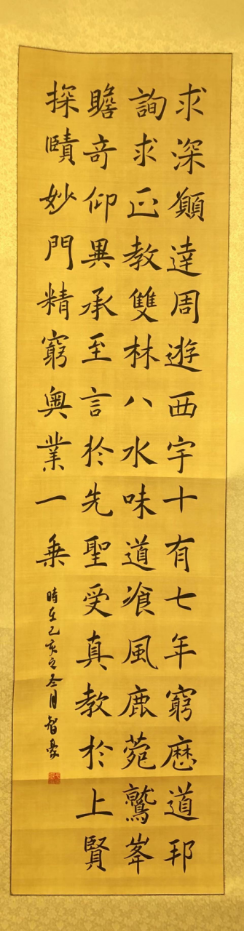 求深願達周遊西宇十有七年窮歷道邦
詢求正教雙林八水味道飡風鹿菀鷲峯
瞻奇仰異承至言於先聖受真教於上賢
探賾妙門精窮奧業一乘
時在己亥之冬月智豪